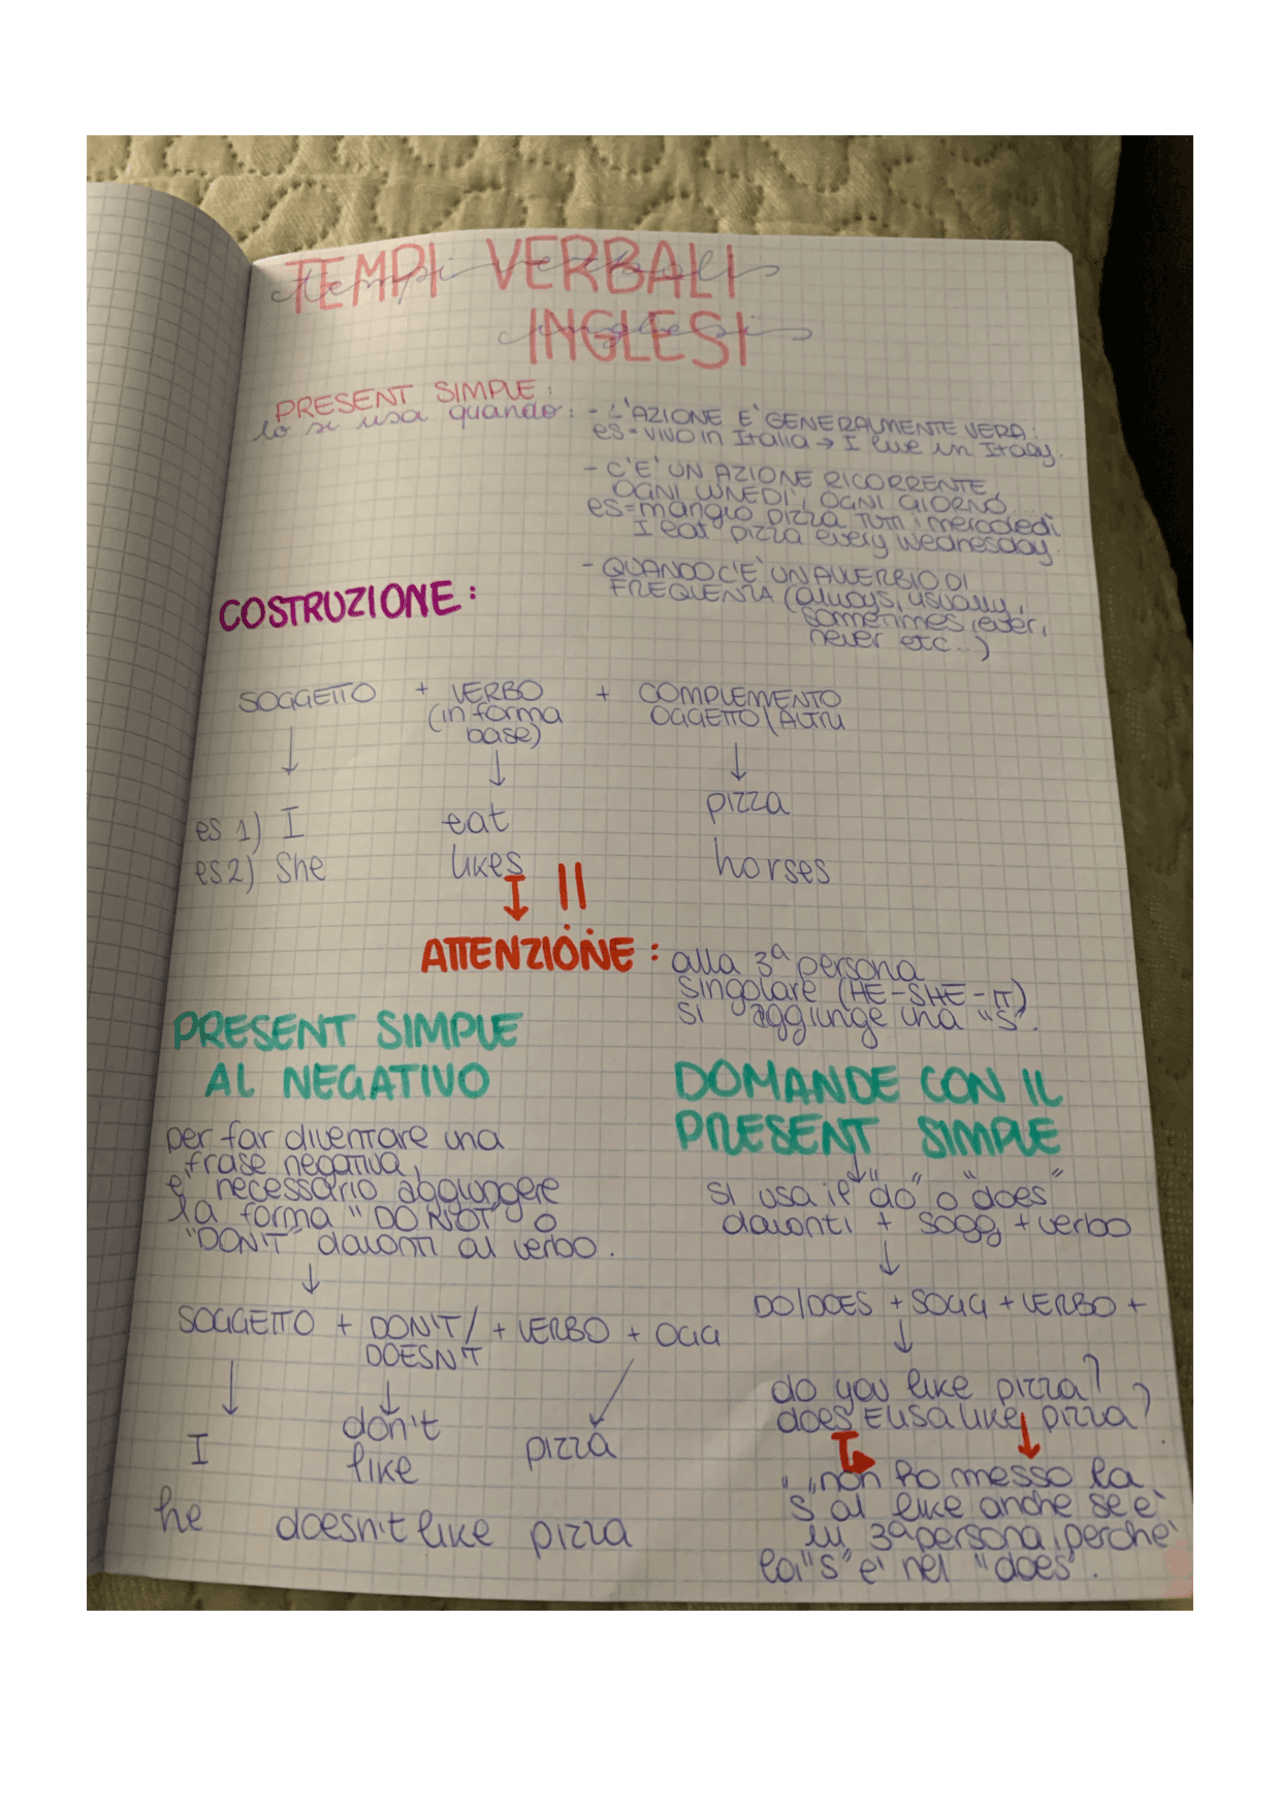 TEMPI VERBALI
INGLESI
PRESENT SIMPLE:
lo si usa quando: - L'AZIONE E' GENERALMENTE VERA:
es = vivo in Italia → I live in Italy.
- C'E' UN AZIONE RICORRENTE,
OGNI LUNEDI', OGNI GIORNO...
es = mangio pizza tutti i mercoledi
I eat pizza every Wednesday.
- QUANDO C'E' UN AVVERBIO DI
FREQUENZA (always, usually,
sometimes, ever,
never etc...)
COSTRUZIONE:
SOGGETTO + VERBO + COMPLEMENTO
(in forma OGGETTO/ALTRI
base)
↓ ↓ ↓
es 1) I eat pizza
es 2) She likes horses
ATTENZIONE: alla 3ª persona
singolare (HE-SHE-IT)
si aggiunge una "S".
PRESENT SIMPLE
AL NEGATIVO
per far diventare una
frase negativa,
e' necessario aggiungere
la forma "DO NOT" o
"DON'T" davanti al verbo.
↓
SOGGETTO + DON'T/ + VERBO + OGG
DOESN'T
I don't pizza
like
he doesn't like pizza
DOMANDE CON IL
PRESENT SIMPLE
↓
si usa il "do" o "does"
davanti + sogg + verbo
↓
DO/DOES + SOGG + VERBO +
↓ ?
do you like pizza?
does Elisa like pizza?
non ho messo la
S al like anche se e'
in 3ª persona, perche'
la "S" e' nel "does".